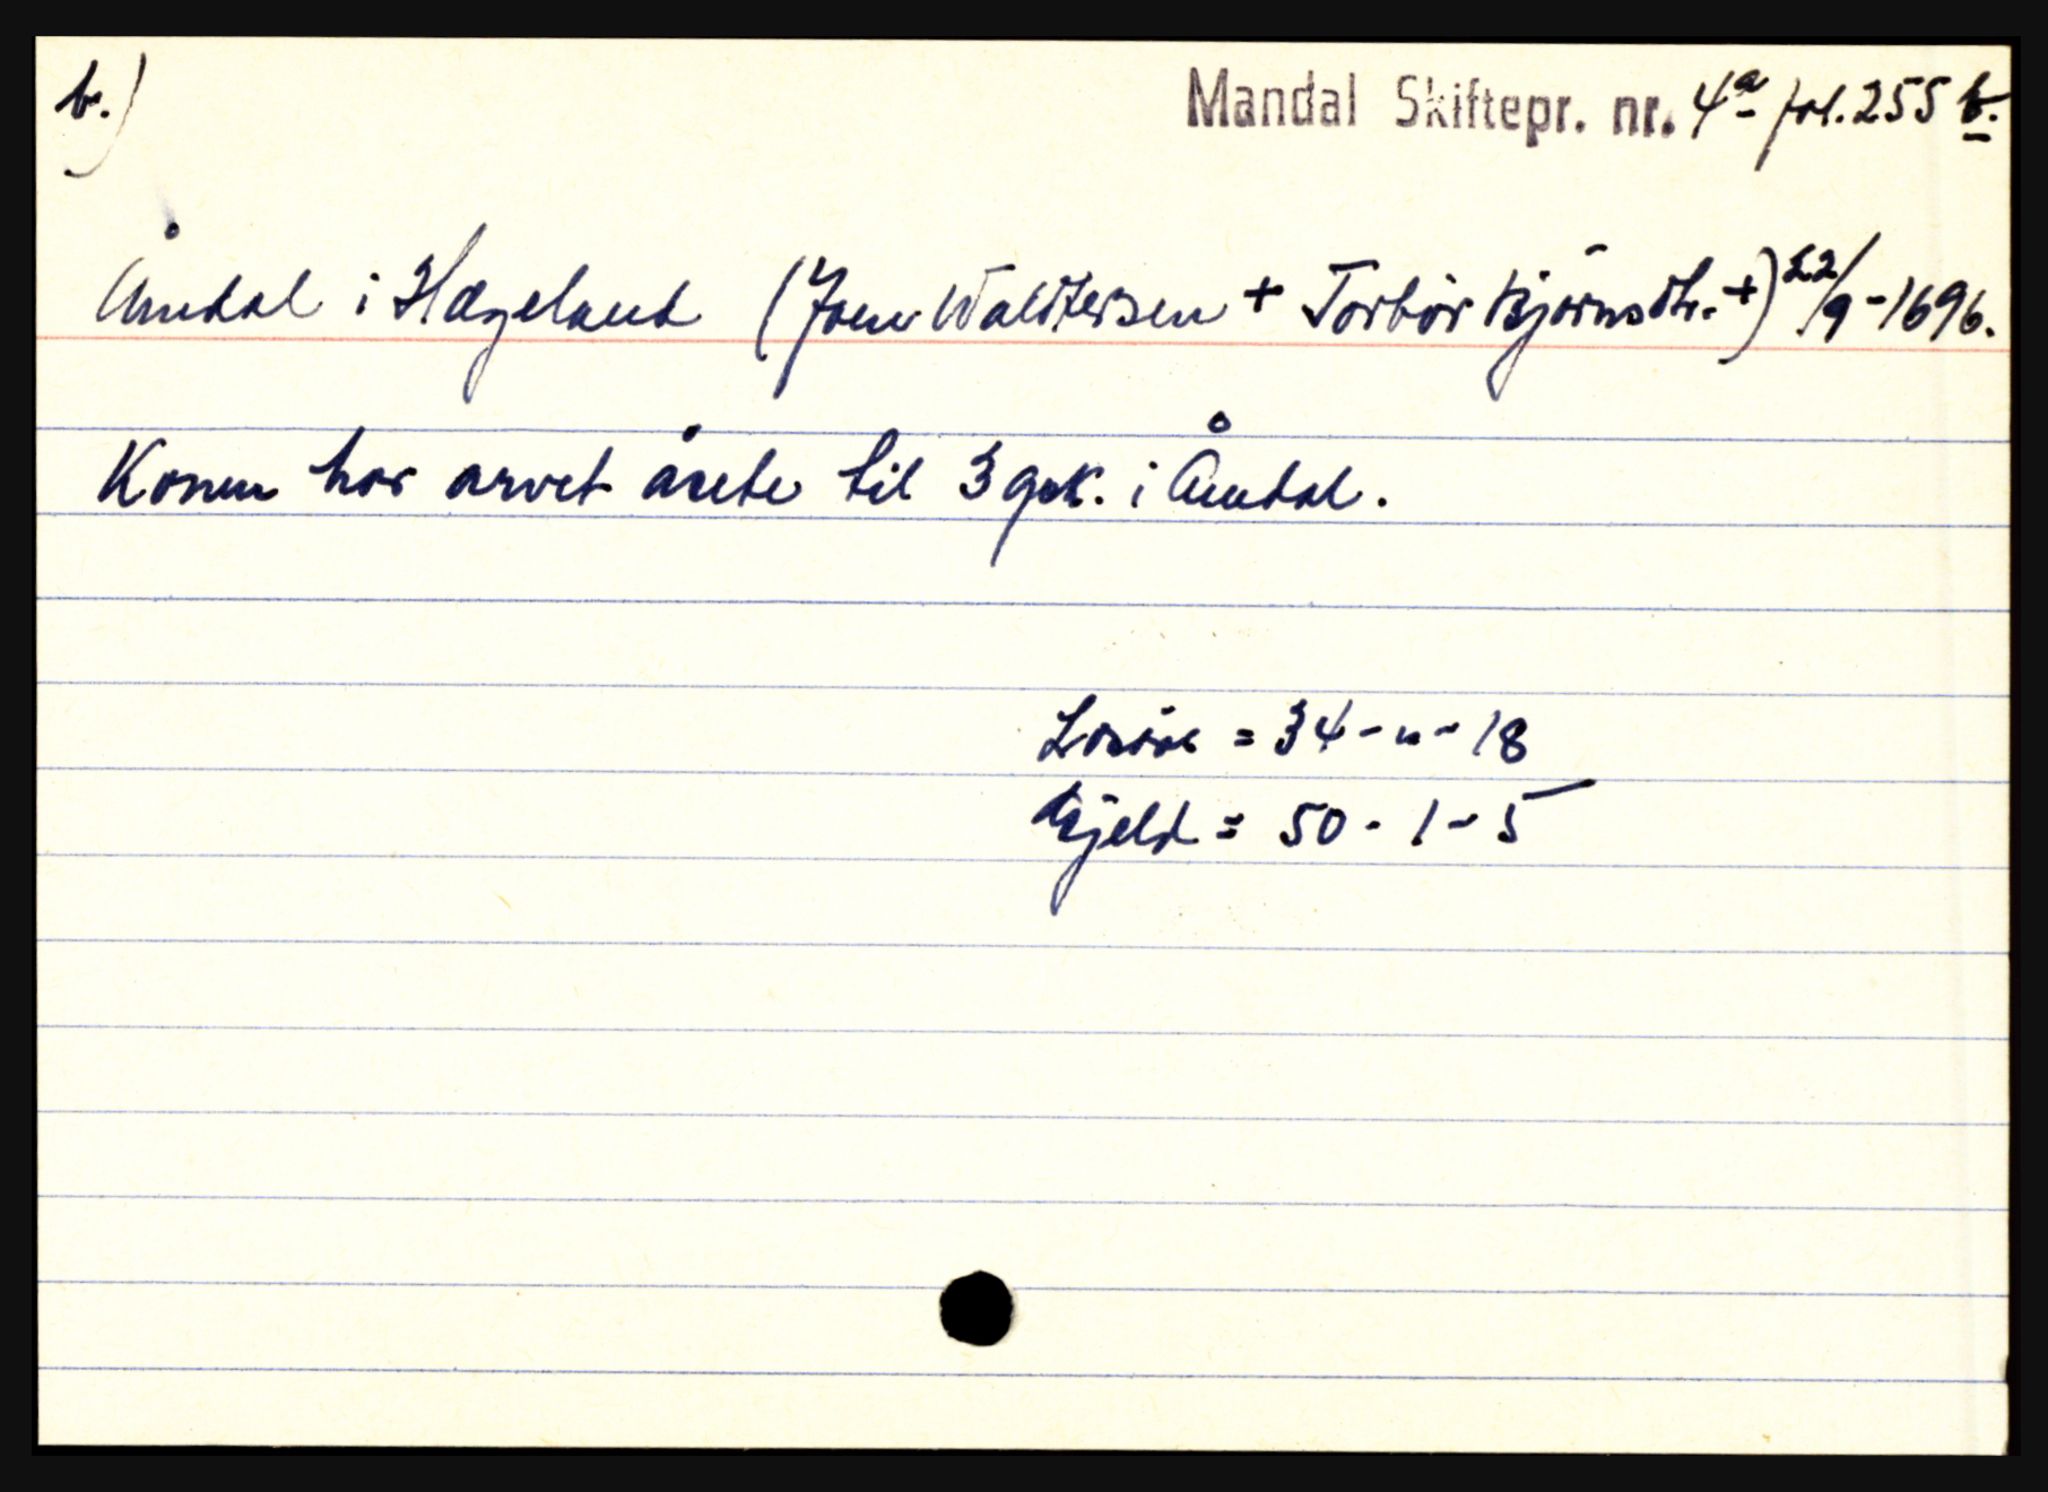 b.)
Mandal Skiftepr. nr. 4a fol. 255 b.
Åmdal i Hægeland (Joen Waldtersen + Torbör Bjørnsdtr. +) 22/9-1696.
Konen har arvet åsete til 3 gsk. i Åmdal.
Løsöre = 34-"-18
Gjeld = 50-1-5